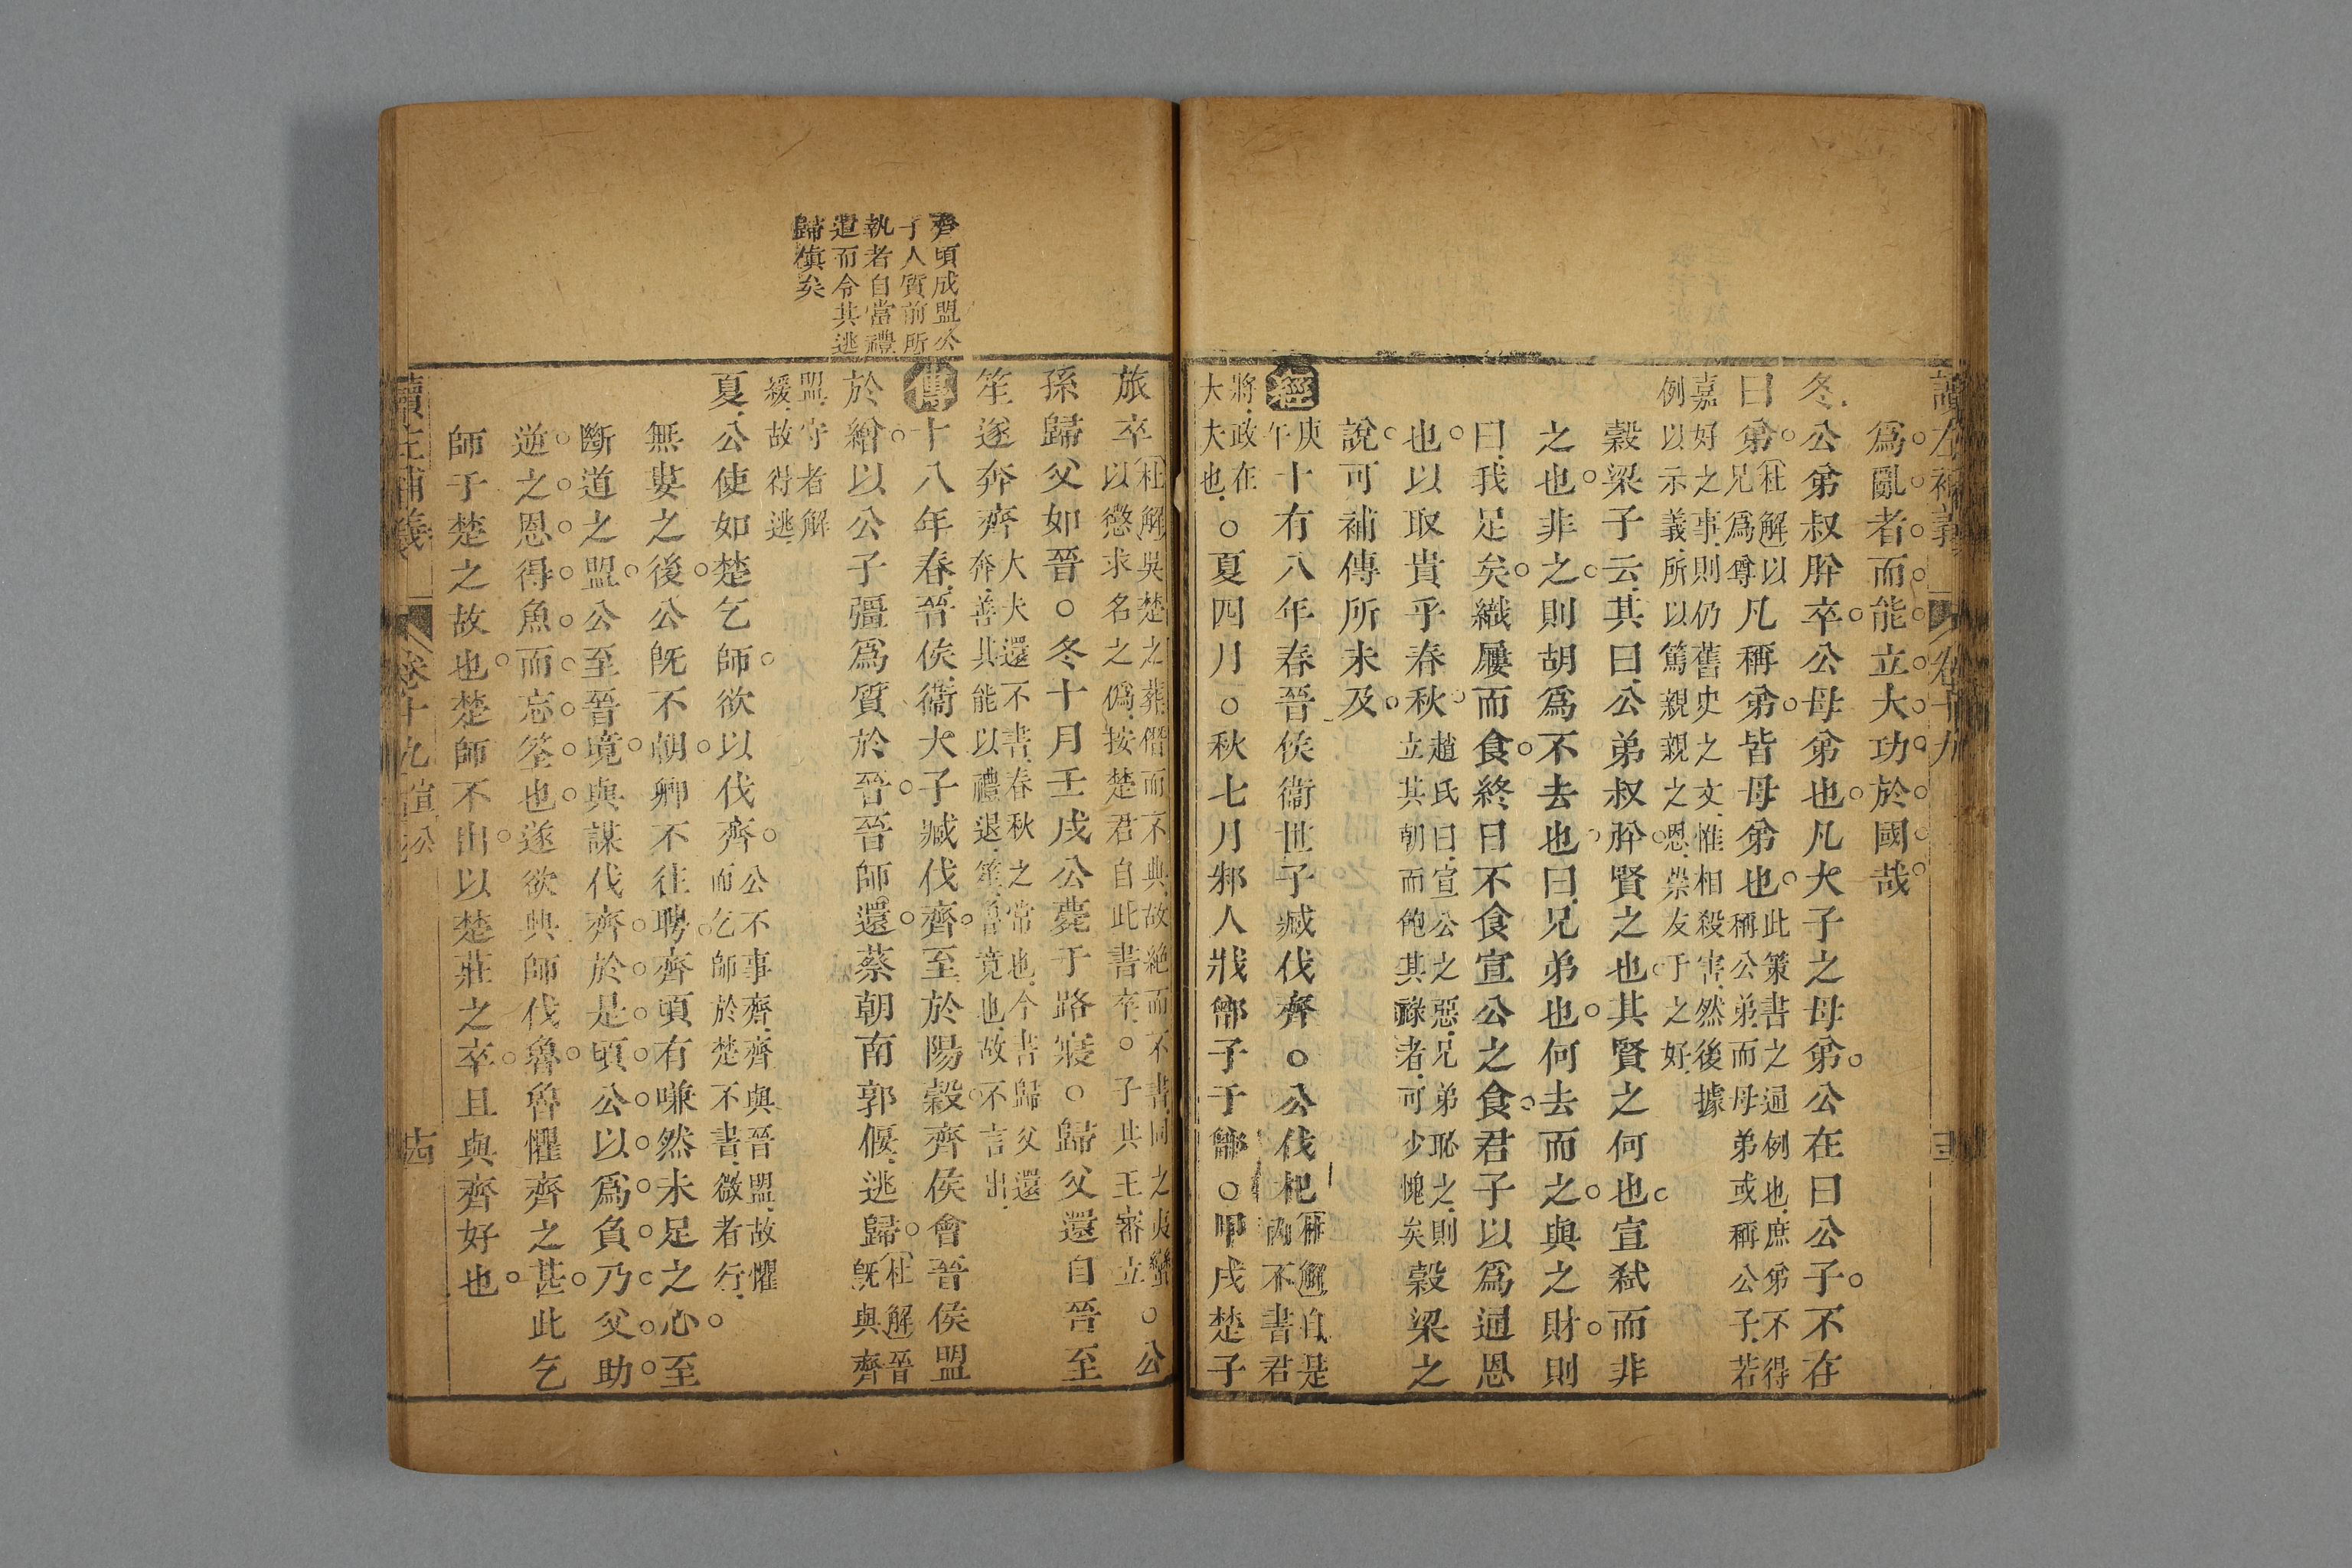 讀左補義　卷十九
爲亂者而能立大功於國哉
冬公弟叔肸卒公母弟也凡大子之母弟公在曰公子不在
曰弟杜解以兄爲尊凡稱弟皆母弟也此策書之通例也庶弟不得稱公弟而母弟或稱公子若
嘉好之事則仍舊史之文惟相殺害然後據例以示義所以篤親親之恩崇友于之好
穀梁子云其曰公弟叔肸賢之也其賢之何也宣弒而非
之也非之則胡爲不去也曰兄弟也何去而之與之財則
曰我足矣織屨而食終日不食宣公之食君子以爲通恩
也以取貴乎春秋趙氏曰宣公之惡兄弟恥之則立其朝而飽其祿者可少愧矣穀梁之
說可補傳所未及
經庚午十有八年春晉侯衞世子臧伐齊○公伐杞杜解自是內不書君
將政在大夫也○夏四月○秋七月邾人戕鄫子于鄫○甲戌楚子
旅卒杜解吳楚之葬僭而不典故絕而不書同之夷蠻以懲求名之僞按楚君自此書卒○子共王審立○公
孫歸父如晉○冬十月壬戌公薨于路寢○歸父還自晉至
笙遂奔齊大夫還不書春秋之常也今書歸父還奔善其能以禮退笙魯竟也故不言出
傳十八年春晉侯衞大子臧伐齊至於陽穀齊侯會晉侯盟
於繒以公子彊爲質於晉晉師還蔡朝南郭偃逃歸杜解晉旣與齊
盟守者解緩故得逃
夏公使如楚乞師欲以伐齊公不事齊齊與晉盟故懼而乞師於楚不書微者行
無婁之後公旣不朝卿不往聘齊頃有嗛然未足之心至
斷道之盟公至晉境與謀伐齊於是頃公以爲負乃父助
逆之恩得魚而忘筌也遂欲興師伐魯魯懼齊之甚此乞
師于楚之故也楚師不出以楚莊之卒且與齊好也
齊頃成盟公
子人質前所
執者自當禮
遣而令其逃
歸傎矣
讀左補義　卷十九宣公　十四